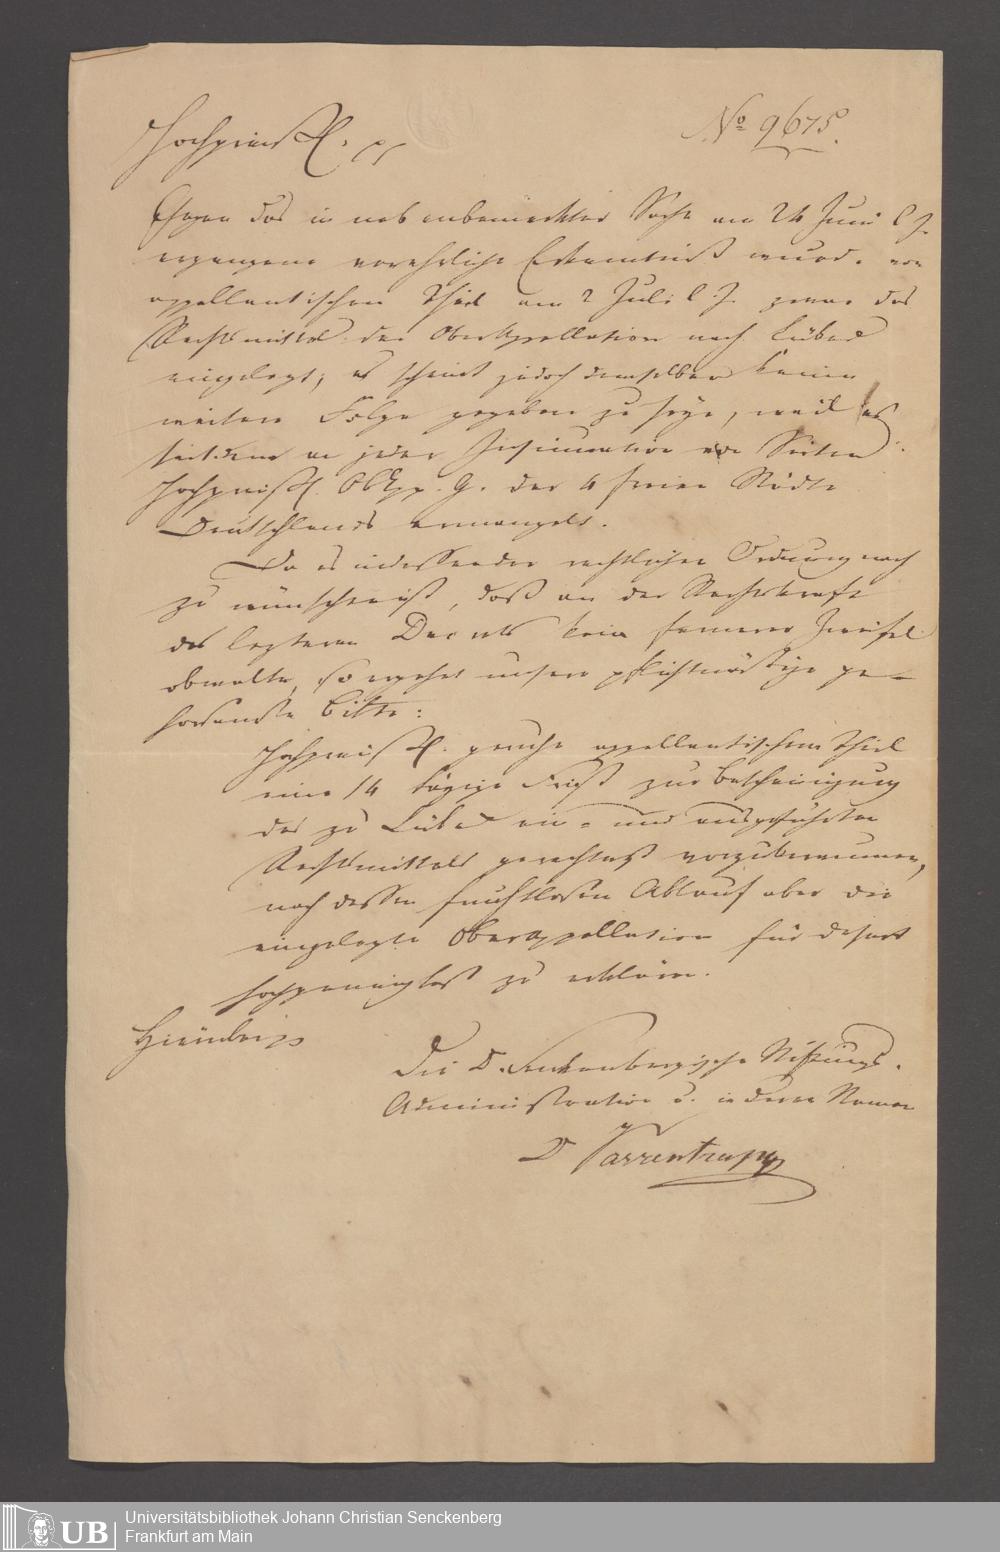 No 9675.
Hochpreißl. pp
Gegen das in nebenbemerkter Sache am 24 Juni l. J.
ergangene verehrliche Erkenntniß wurde von
appellantischem Theil am 2 Juli l. J. zwar das
Rechtsmittel der Oberappellation nach Lübeck
eingelegt; es scheint jedoch demselben keine
weitere Folge gegeben zu seyn, weil es
seitdem an jeder Insinuation von Seiten
Hochpreißl. OApp. G. der 4 freien Städte
Deutschlands ermangelt.
Da es indessen der rechtlichen Ordnung nach
zu wünschen ist, daß an der Rechtskraft
des letzteren Decrets kein fernerer Zweifel
obwalte, so ergehet unsere pflichtmäßige ge-
horsamste Bitte:
Hochpreißl. geruhe appellantischem Theil
eine 14 tägige Frist zur Bescheinigung
des zu Lübeck ein- und ausgeführten
Rechtsmittels gerechtest vorzuberaumen,
nach dessen fruchtlosen Ablauf aber die
eingelegte Oberappellation für desert
hochgeneigtest zu erklären.
Hierüber pp
Die D. Senckenbergische Stiftungs-
Administration u. in deren Namen
D Varrentrapp
UB
Universitätsbibliothek Johann Christian Senckenberg
Frankfurt am Main